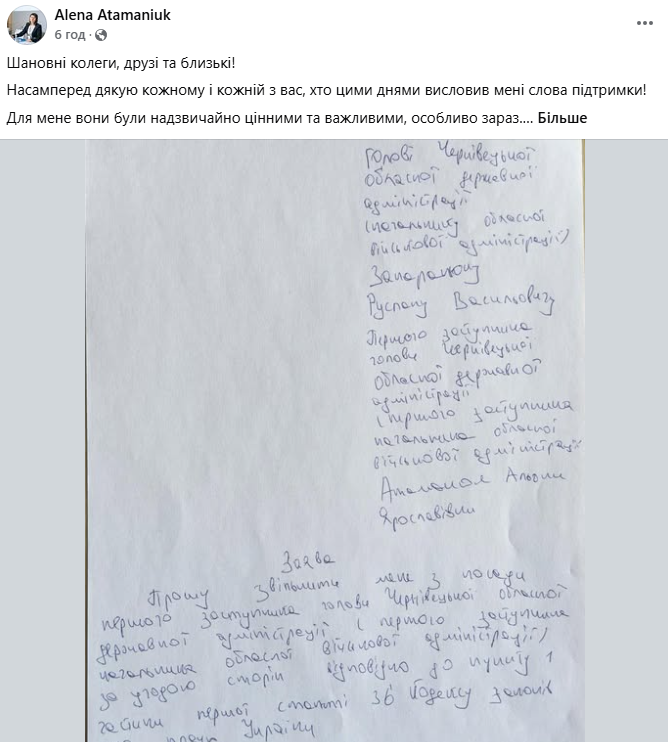 Alena Atamaniuk
6 год ·
Шановні колеги, друзі та близькі!
Насамперед дякую кожному і кожній з вас, хто цими днями висловив мені слова підтримки!
Для мене вони були надзвичайно цінними та важливими, особливо зараз.... Більше
Голові Чернівецької
обласної державної
адміністрації
(начальнику обласної
військової адміністрації)
Запаранюку
Руслану Васильовичу
Першого заступника
голови Чернівецької
обласної державної
адміністрації
(першого заступника
начальника обласної
військової адміністрації
Атаманюк Альони
Ярославівни
Заява
Прошу звільнити мене з посади
першого заступника голови Чернівецької обласної
державної адміністрації (першого заступника
начальника обласної військової адміністрації)
за угодою сторін відповідно до пункту 1
частини першої статті 36 Кодексу законів
працю України